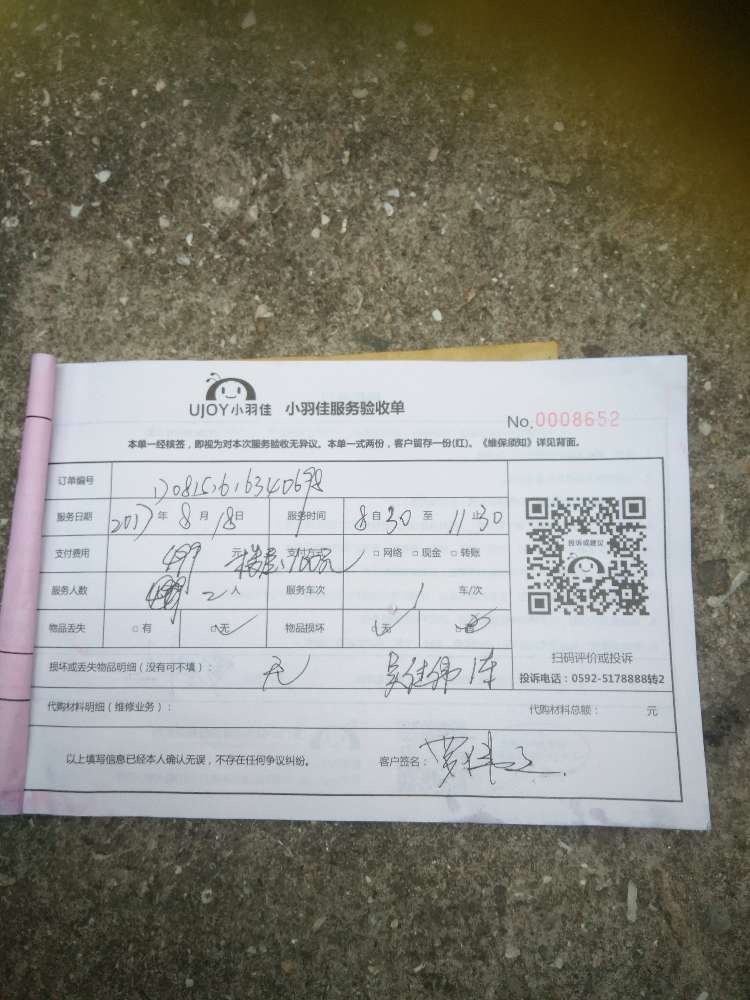 UJOY小羽佳 小羽佳服务验收单
No.0008652
本单一经核签，即视为对本次服务验收无异议。本单一式两份，客户留存一份(红)。《维保须知》详见背面。
订单编号
服务日期 2017年8月18日 服务时间 8自30至11止30
支付费用 499元 支付方式 □网络 □现金 □转账
服务人数 2人 服务车次 1车/次
物品丢失 □有 □无 物品损坏 □无 □有
损坏或丢失物品明细（没有可不填）： 无
代购材料明细（维修业务）： 代购材料总额： 元
以上填写信息已经本人确认无误，不存在任何争议纠纷。 客户签名：
投诉或建议
扫码评价或投诉
投诉电话：0592-5178888转2